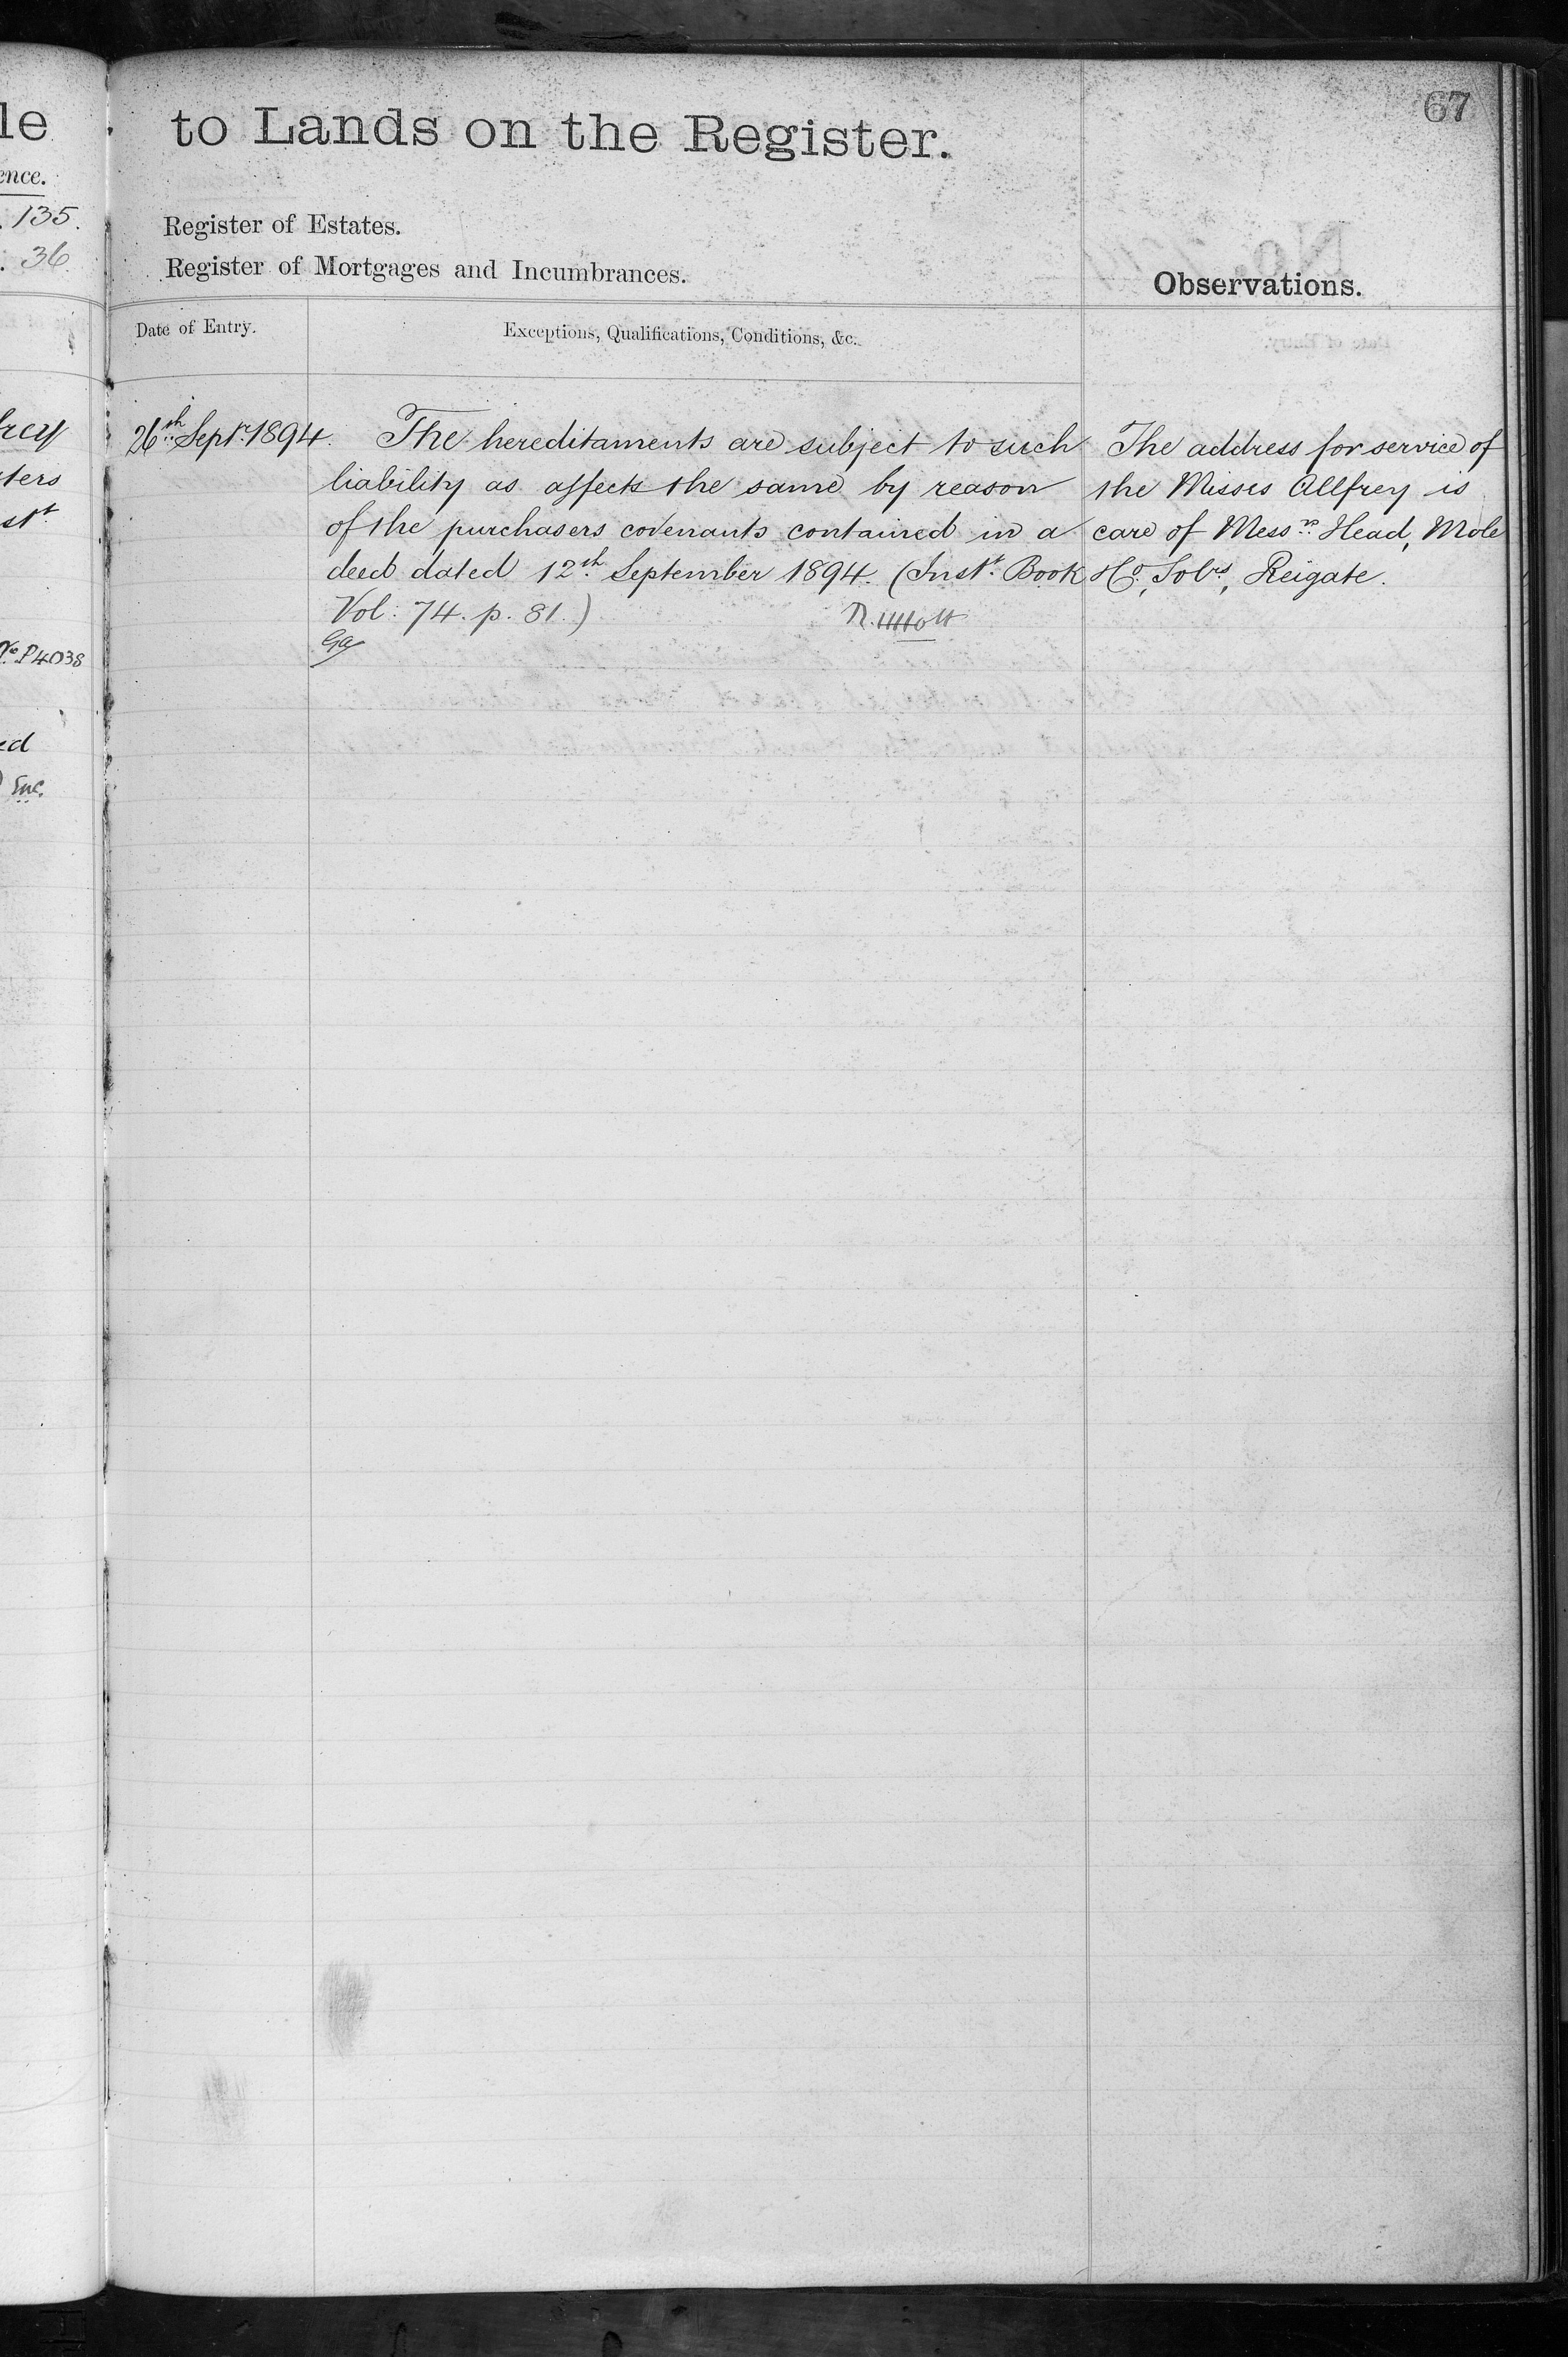 67
le
to Lands on the Register.
ence.
135.
36
Register of Estates.
Register of Mortgages and Incumbrances.
Observations.
Date of Entry.
Exceptions, Qualifications, Conditions, &c.
26th Septr. 1894.
The hereditaments are subject to such
liability as affects the same by reason
of the purchasers covenants contained in a
deed dated 12th September 1894. (Instt. Book
Vol: 74. p. 81.)
The address for service of
the Misses Allfrey is
care of Messrs. Head, Mole
Ho, Solrs, Reigate.
frey
sters
stt
No. P4038
ed